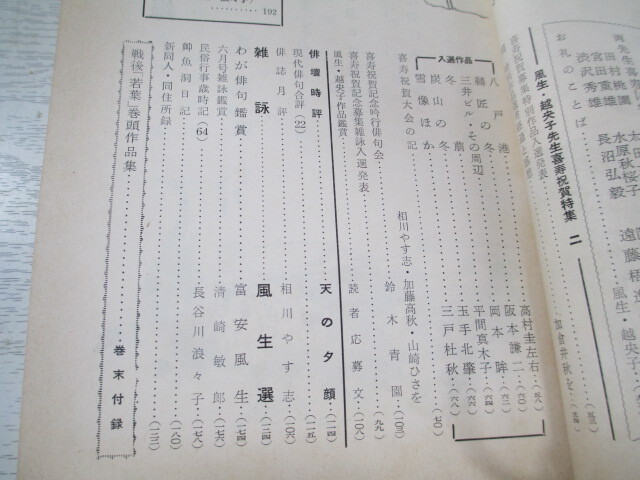 両先生喜寿
田村桃園
宮田重雄
渋沢秀雄
水原秋桜子
長沼弘毅
遠藤梧
風生・越央子
お礼のことば
風生・越央子先生喜寿祝賀特集 二
喜寿祝賀募集特別作品入選発表
入選作品
八戸港 高村圭左右
鵜匠の冬 阪本謙二
三井ビル・その周辺 岡本眸
冬扇 平間真木子
炭山の冬 玉手北肇
雪像ほか 三戸杜秋
喜寿祝賀大会の記 相川やす志・加藤高秋・山崎ひさを (七〇)
喜寿祝賀記念吟行俳句会 鈴木青園 (一〇三)
喜寿祝賀記念募集雑詠入選発表 (九九)
風生・越央子作品鑑賞 読者応募文 (一〇八)
俳壇時評 天の夕顔 (一一四)
現代俳句合評(22) (一一五)
俳誌月評 相川やす志 (一〇六)
雑詠 風生選 (一二四)
わが俳句鑑賞 富安風生 (一七四)
六月号雑詠鑑賞 清崎敏郎 (一七六)
民俗行事歳時記(64) 長谷川浪々子 (一七八)
帥魚洞日記 (一八〇)
新同人・同住所録
戦後「若葉」巻頭作品集 巻末付録
192